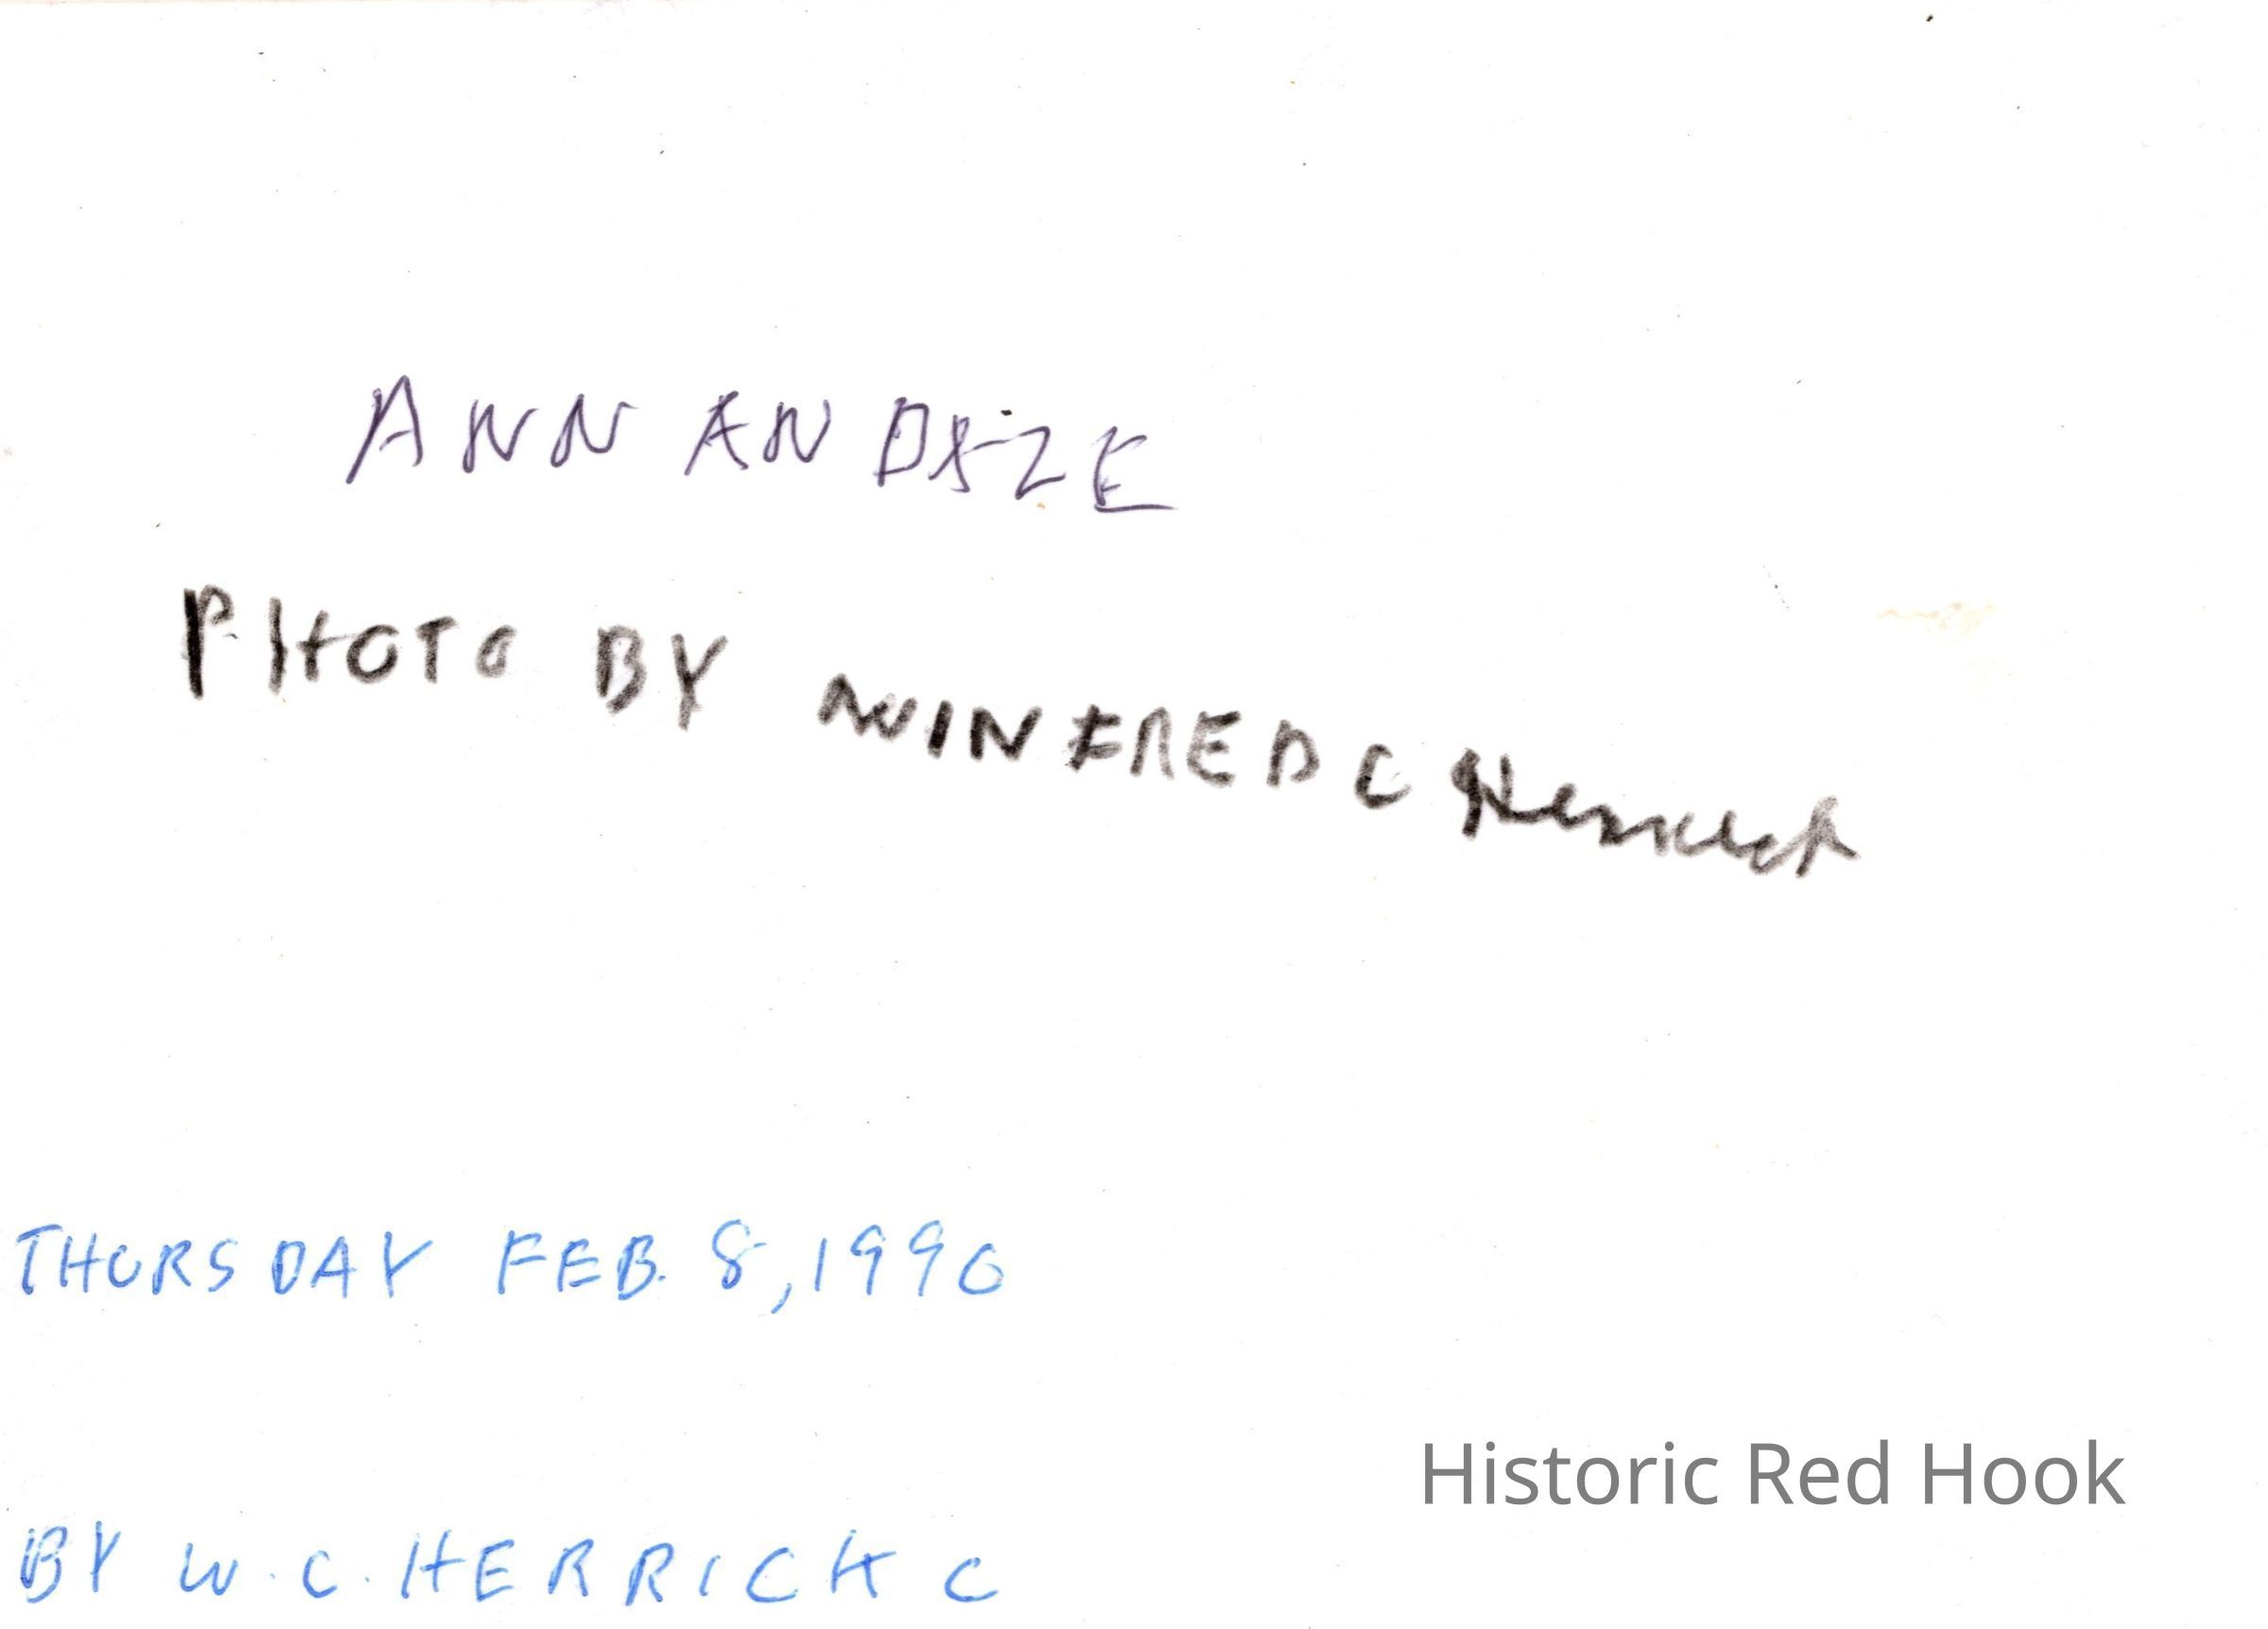 ANNANDALE
PHOTO BY WINFRED C Herrick
THURSDAY FEB. 8, 1990
Historic Red Hook
BY W. C. HERRICK C